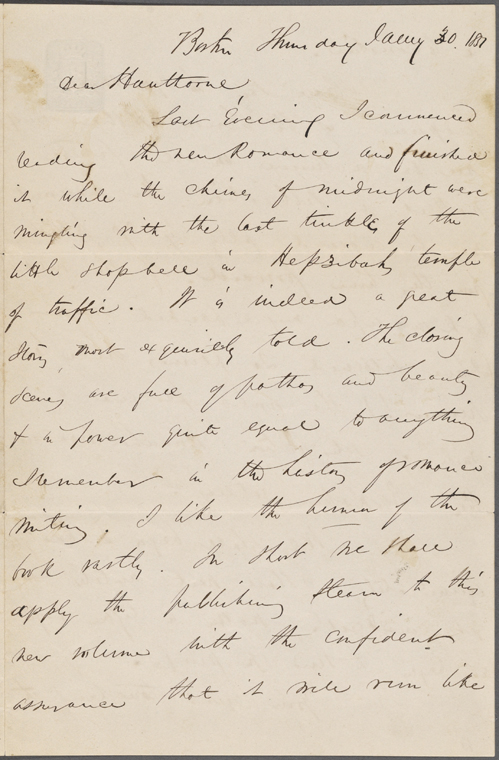 Boston Thursday Jany 30. 1851
Dear Hawthorne
Last Evening I commenced
reading the new Romance and finished
it while the chimes of midnight were
mingling with the last tinkles of the
little shop bell in Hepzibah's temple
of traffic. It is indeed a great
Story, most exquisitely told. The closing
scenes are full of pathos and beauty
& in power quite equal to anything
I remember in the history of romance
writing. I like the humor of the
book vastly. In short we shall
apply the publishing steam to this
new volume with the confident
assurance that it will run like